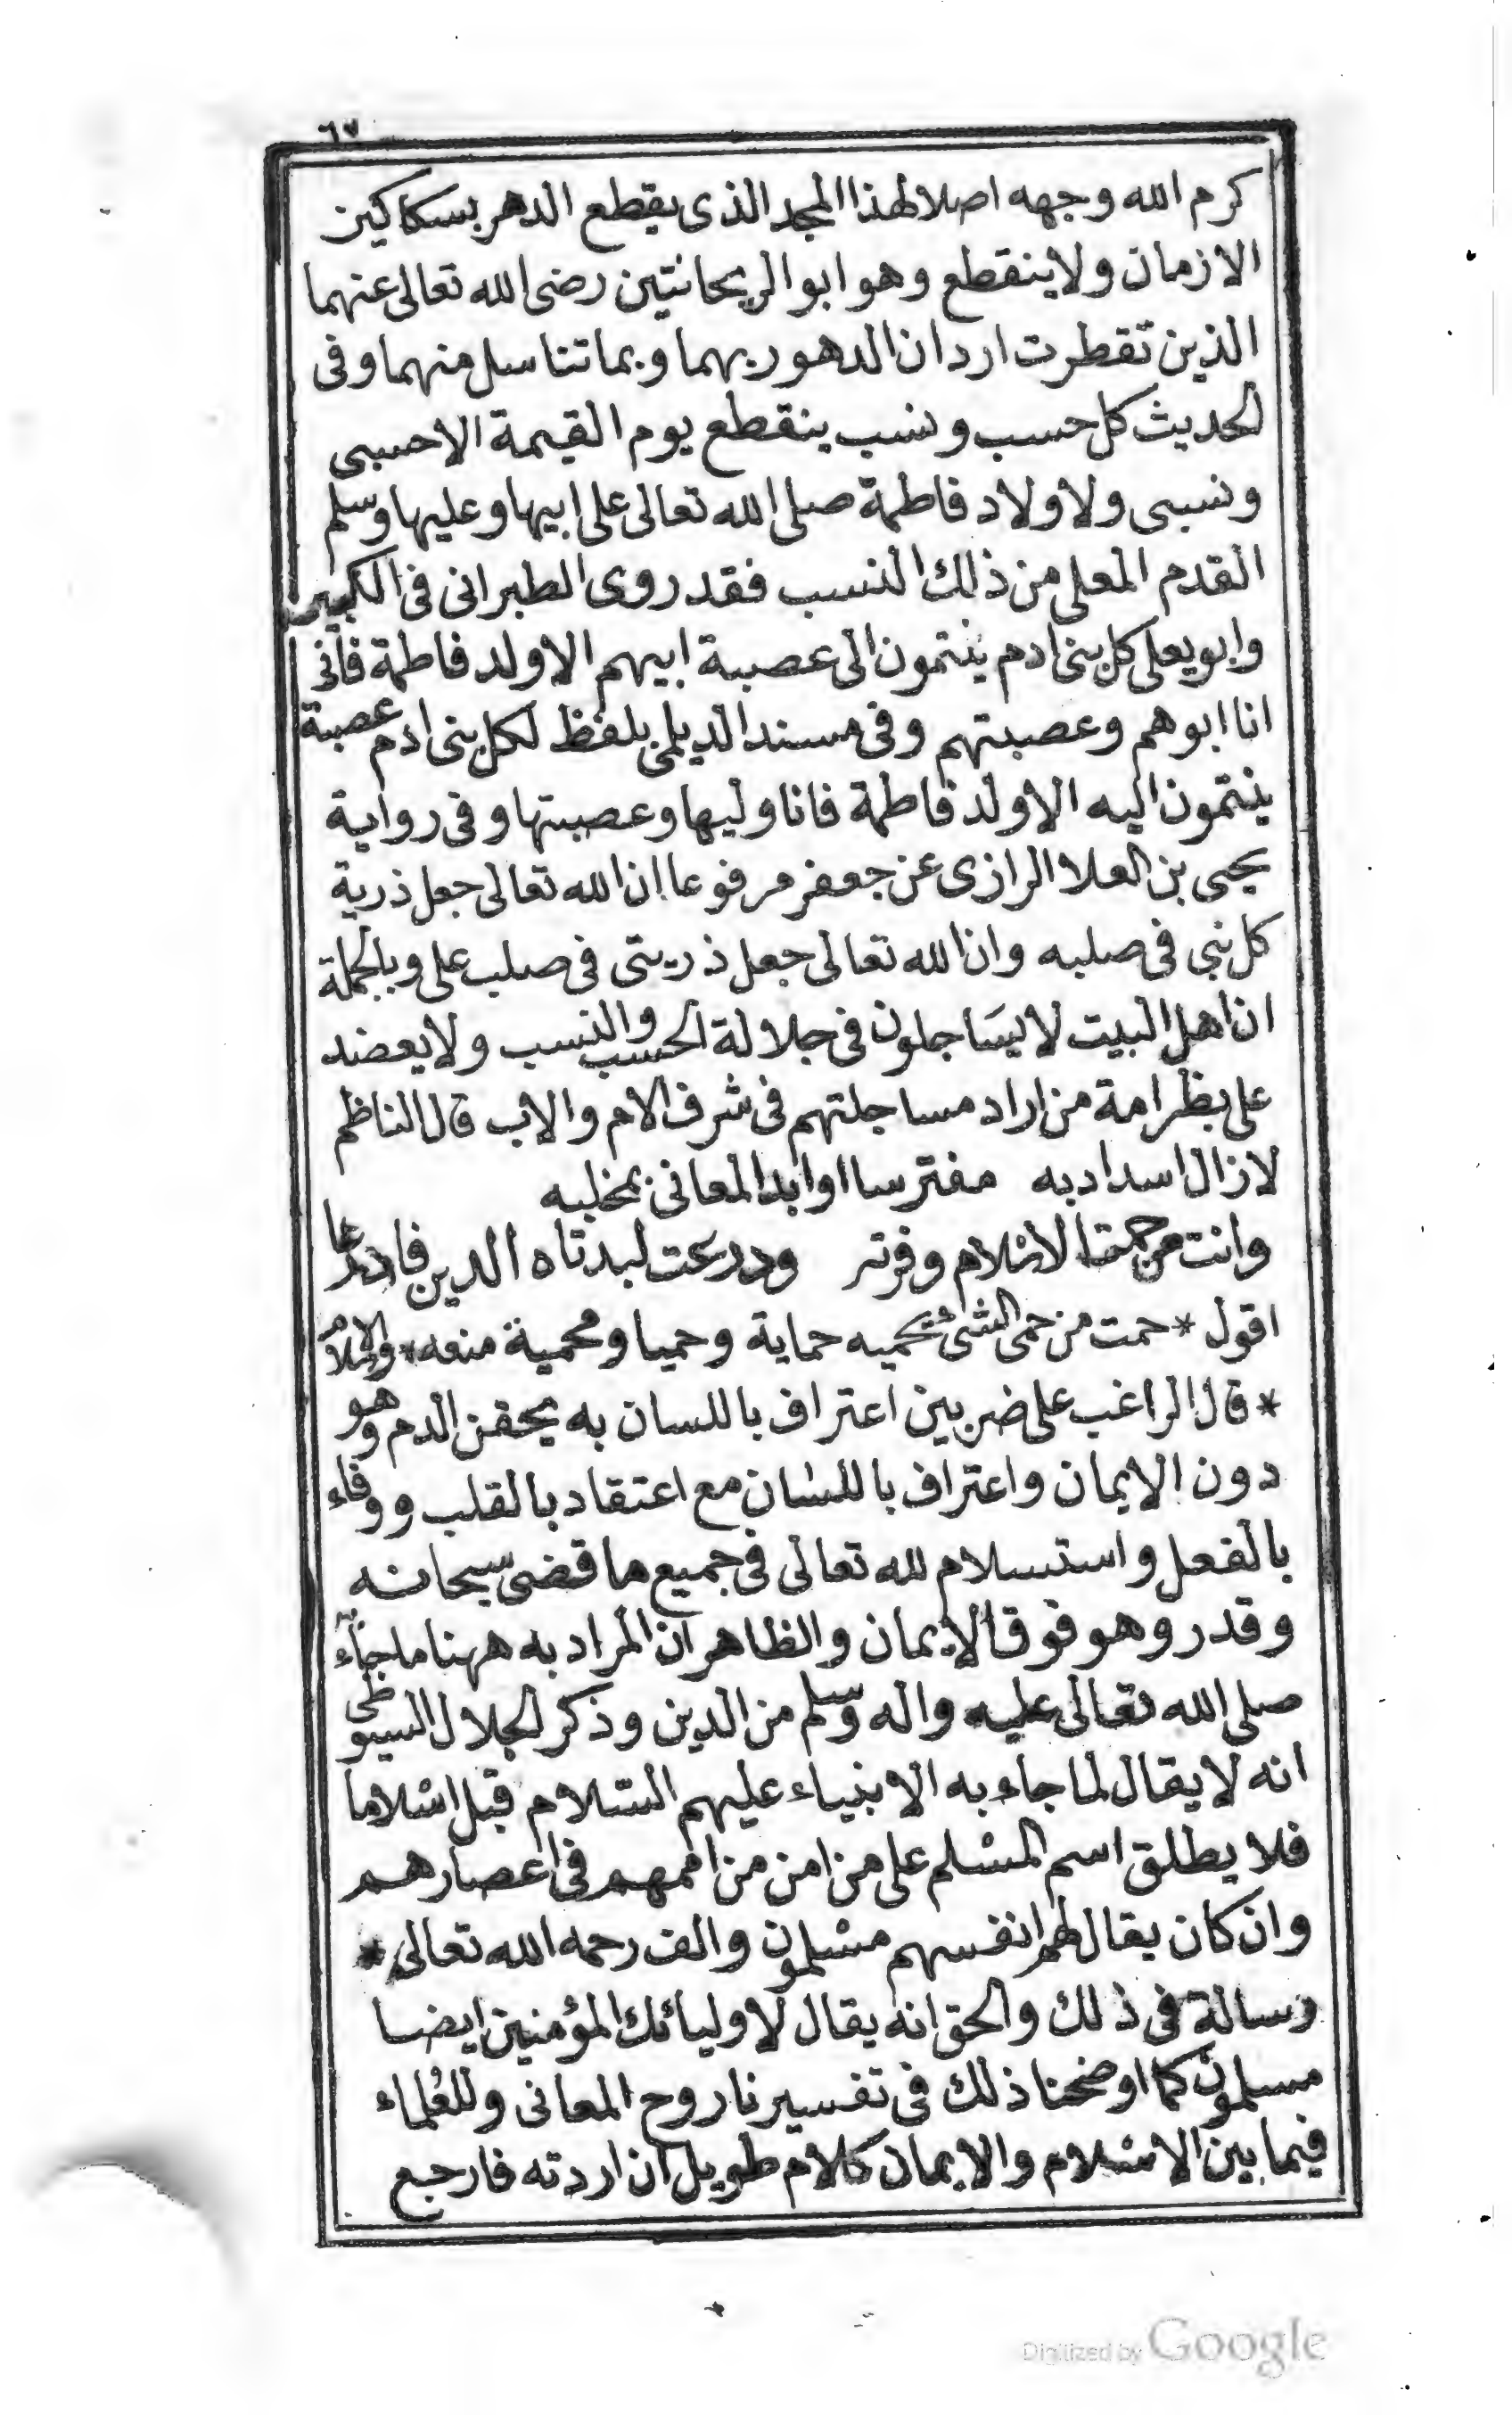 ٦٧
كرم الله وجهه اصلا لهذا المجد الذى يقطع الدهر بسكاكين
الازمان ولا ينقطع وهو ابو الريحانتين رضى الله تعالى عنهما
الذين تقطرت اردان الدهور بهما وبما تناسل منهما وفى
الحديث كل حسب ونسب ينقطع يوم القيمة الا حسبى
ونسبى ولا ولاد فاطمة صلى الله تعالى على ابيها وعليها وسلم
القدم المعلى من ذلك النسب فقد روى الطبرانى فى الكبير
وابو يعلى كل بنى ادم ينتمون الى عصبة ابيهم الا ولد فاطمة فانى
انا ابوهم وعصبتهم وفى مسند الديلمى بلفظ لكل بنى ادم عصبة
ينتمون اليه الا ولد فاطمة فانا وليها وعصبتها وفى رواية
يحيى بن العلا الرازى عن جعفر مرفوعا ان الله تعالى جعل ذرية
كل نبى فى صلبه وان الله تعالى جعل ذريتى فى صلب على وبالجملة
ان اهل البيت لا يساجلون فى جلالة الحسب والنسب ولا يعضد
على بظرامة من اراد مساجلتهم فى شرف الام والاب قال الناظم
لازال اسد ادبه مفترسا اوابد المعانى بمخلبه
وانت من حمت الاسلام وفرته ودرعت لبدتاه الدين فادرعا
اقول * حمت من حمى الشئ يحميه حماية وحميا ومحمية منعه * والاسلام
* قال الراغب على ضربين اعتراف باللسان به يحقن الدم وهو
دون الايمان واعتراف باللسان مع اعتقاد بالقلب ووفاء
بالفعل واستسلام لله تعالى فى جميع ما قضى سبحانه
وقدر وهو فوق الايمان والظاهر ان المراد به ههنا ما جاء به
صلى الله تعالى عليه واله وسلم من الدين وذكر الجلال السيوطى
انه لا يقال لما جاء به الانبياء عليهم السلام قبل اسلاما
فلا يطلق اسم المسلم على من امن من اممهم فى اعصارهم
وان كان يقال لهم انفسهم مسلمون والف رحمه الله تعالى *
رسالة فى ذلك والحق انه يقال لاوليائك المؤمنين ايضا
مسلمون كما اوضحنا ذلك فى تفسيرنا روح المعانى وللعلماء
فيما بين الاسلام والايمان كلام طويل ان اردته فارجع
Digitized by Google